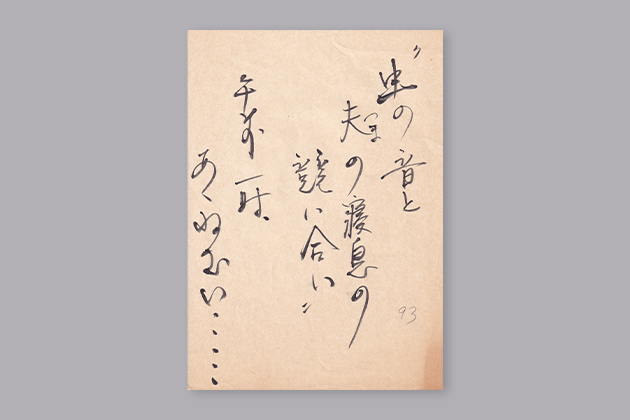 〝虫の音と
夫つまの寝息の
競い合い〟
午前一時
あゝねむい……
93